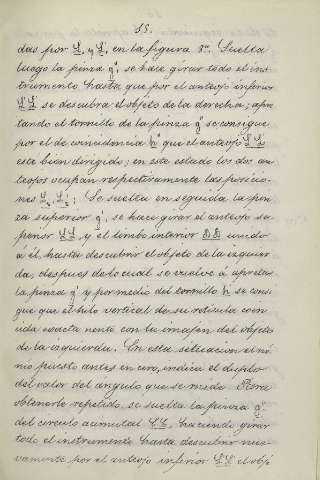 55.
das por L, y L', en la figura 8ª. Suelta
luego la pinza q', se hace girar todo el ins-
trumento hasta que por el anteojo inferior
L'L' se descubra el objeto de la derecha; apre
tando el tornillo de la pinza q' se consigue
por el de coincidencia h' que el anteojo LL
este bien dirigido; en este estado los dos an-
teojos ocupan respectivamente las posicio-
nes L, L'; Se suelta en seguida la pin
za superior q', se hace girar el anteojo su
perior LL y el limbo interior DD unido
á él, hasta descubrir el objeto de la izquier
da, despues de lo cual se vuelve á apretar
la pinza q' y por medio del tornillo h se consi
gue que el hilo vertical de su reticula coin
cida exactamente con la imajen del objeto
de la izquierda. En esta situacion el nó
nio puesto antes en cero, indica el duplo
del valor del angulo que se mide. Para
obtenerle repetido, se suelta la pinza q'
del circulo acimutal, haciendo girar
todo el instrumento hasta descubrir nue-
vamente por el anteojo inferior L'L' el obje